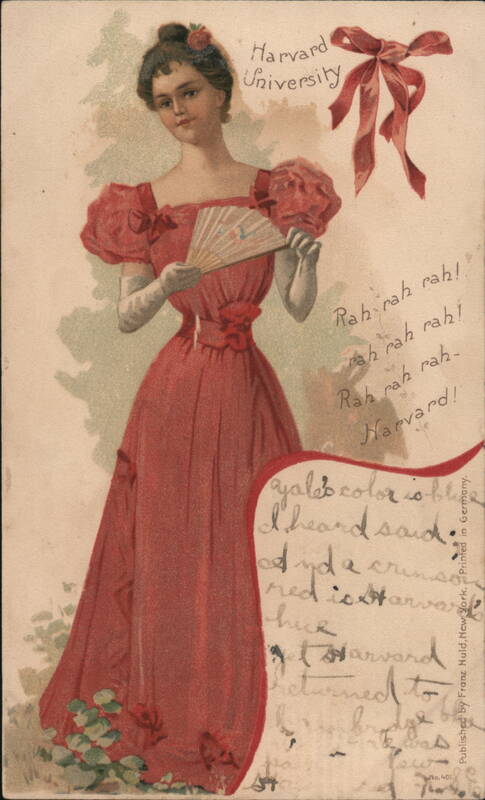 Harvard
University
Rah rah rah!
rah rah rah!
Rah rah rah-
Harvard!
yale's color is blue
I heard said;
a crimson
red is Harvard's
hue
yet Harvard
returned to
blue
was
few
Published by Franz Huld, New York. Printed in Germany.
No. 401